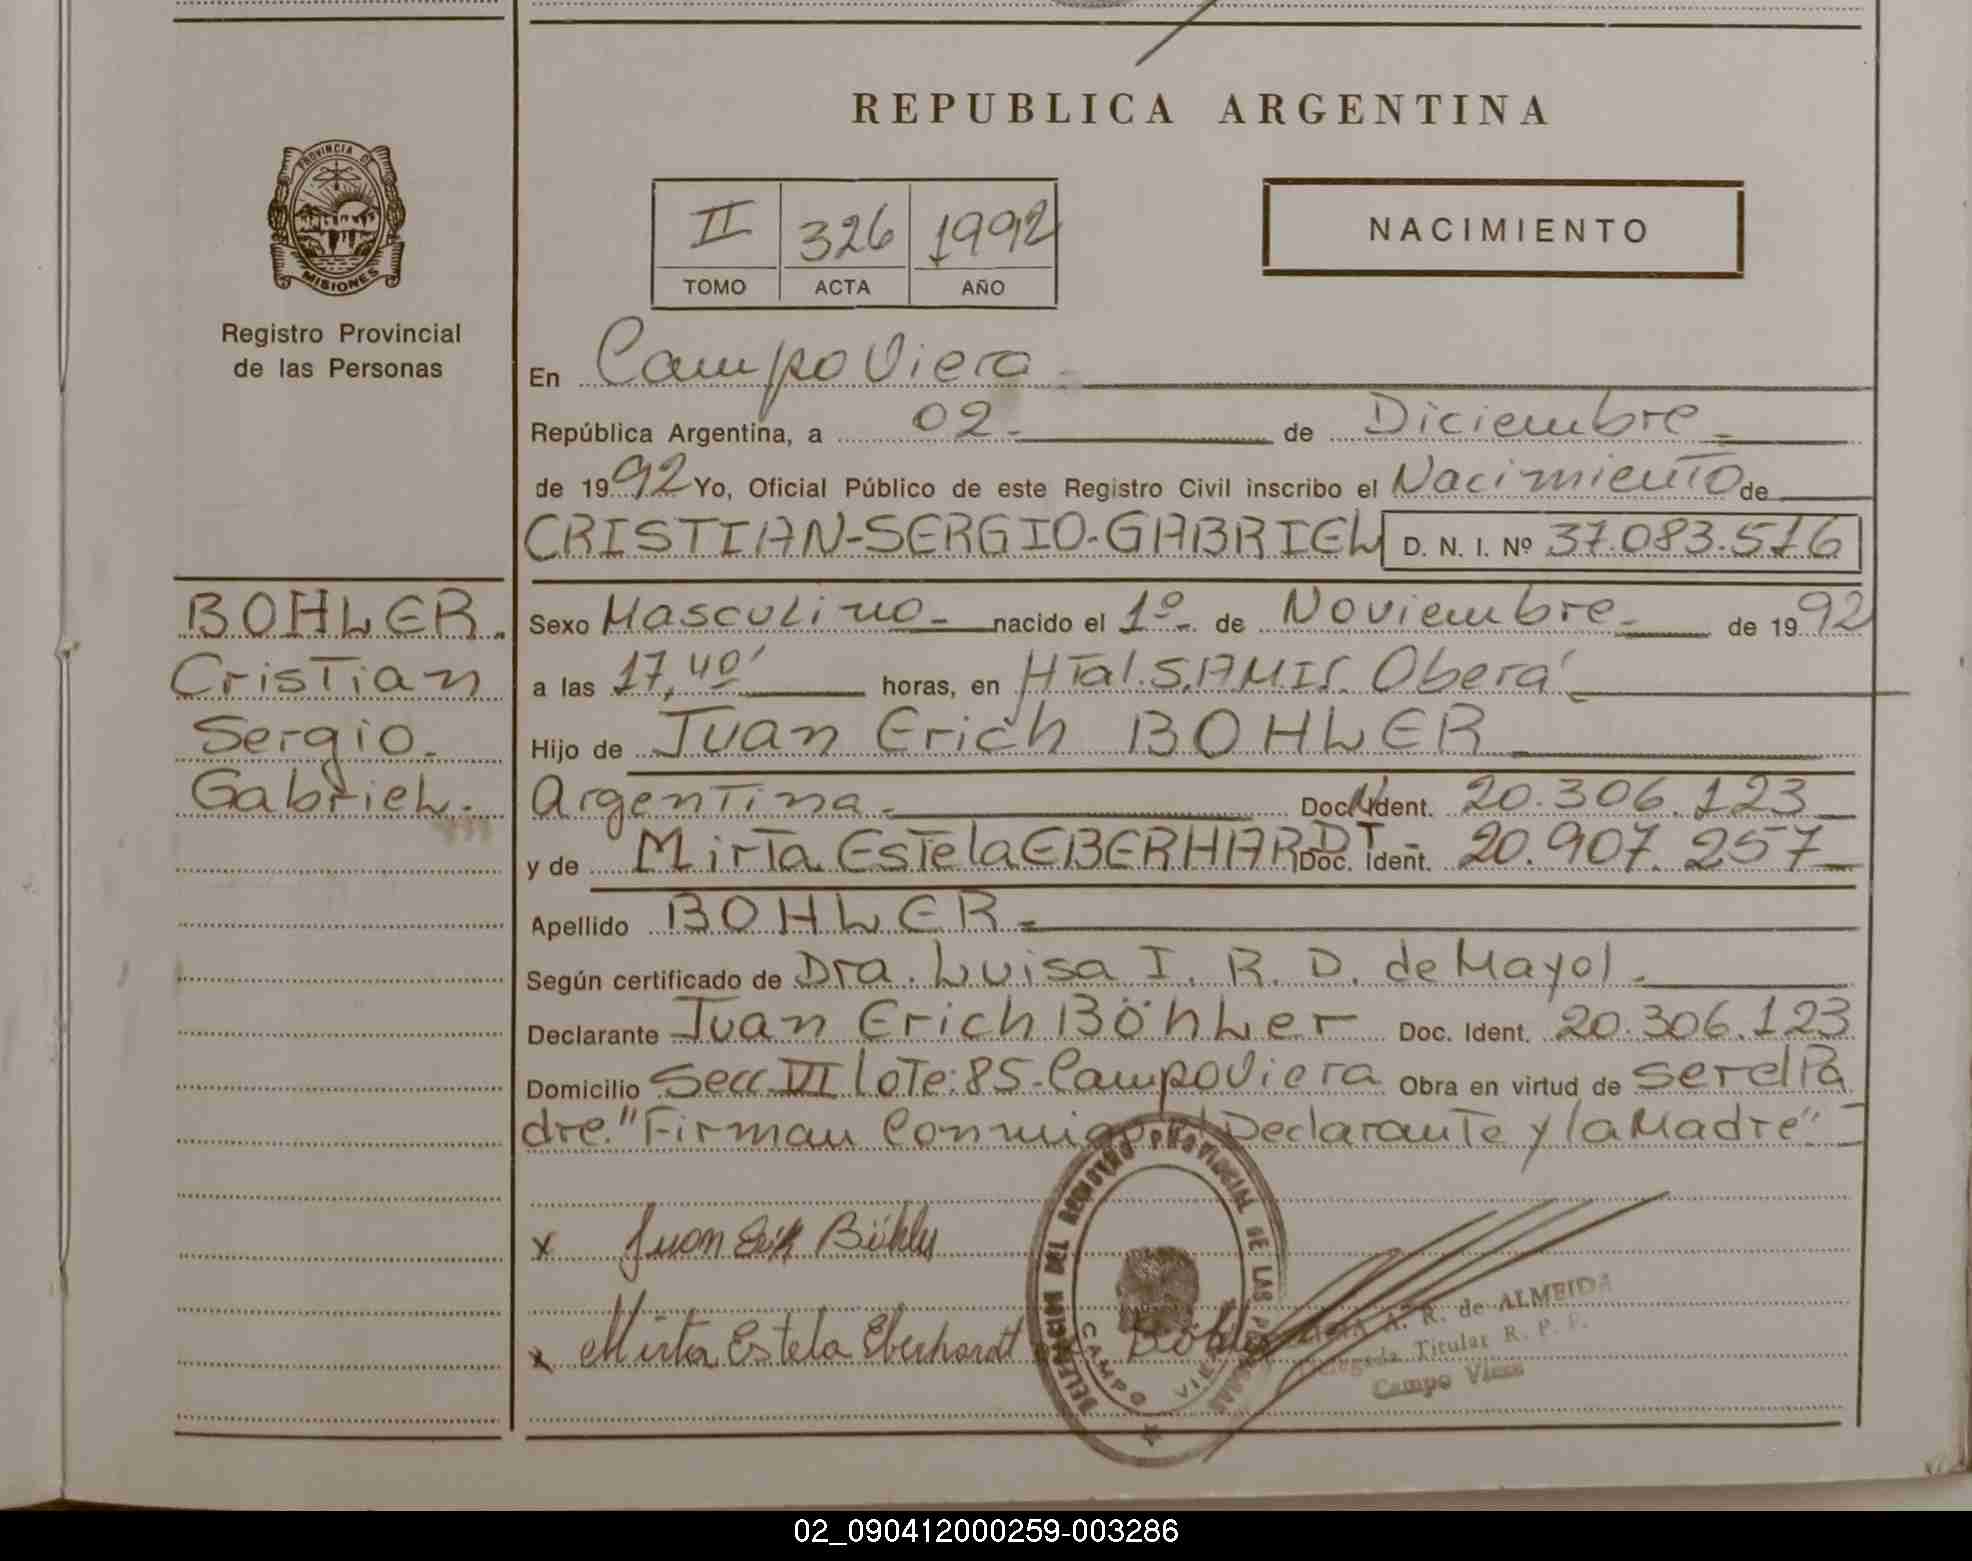 REPUBLICA ARGENTINA
PROVINCIA DE
MISIONES
Registro Provincial
de las Personas
II 326 1992
TOMO ACTA AÑO
NACIMIENTO
En Campo Viera
República Argentina, a 02 de Diciembre
de 1992 Yo, Oficial Público de este Registro Civil inscribo el Nacimiento de
CRISTIAN-SERGIO-GABRIEL D. N. I. Nº 37.083.516
BOHLER.
Cristian
Sergio.
Gabriel.
Sexo Masculino nacido el 1º de Noviembre de 1992
a las 17,40' horas, en Htal. S.A.M.I.C. Oberá
Hijo de Juan Erich BOHLER
Argentina. Doc. Ident. 20.306.123
y de Mirta Estela EBERHARDT Doc. Ident. 20.907.257
Apellido BOHLER
Según certificado de Dra. Luisa I. R. D. de Mayol.
Declarante Juan Erich Böhler Doc. Ident. 20.306.123
Domicilio Secc. VII Lote: 85. Campo Viera Obra en virtud de ser el Pa
dre. "Firman Conmigo el Declarante y la Madre"
x Juan Erich Böhler
x Mirta Estela Eberhardt de Böhler
DELEGACION DEL REGISTRO PROVINCIAL DE LAS PERSONAS
CAMPO VIERA
A. R. de ALMEIDA
Delegada Titular R. P. P.
Campo Viera
02_090412000259-003286